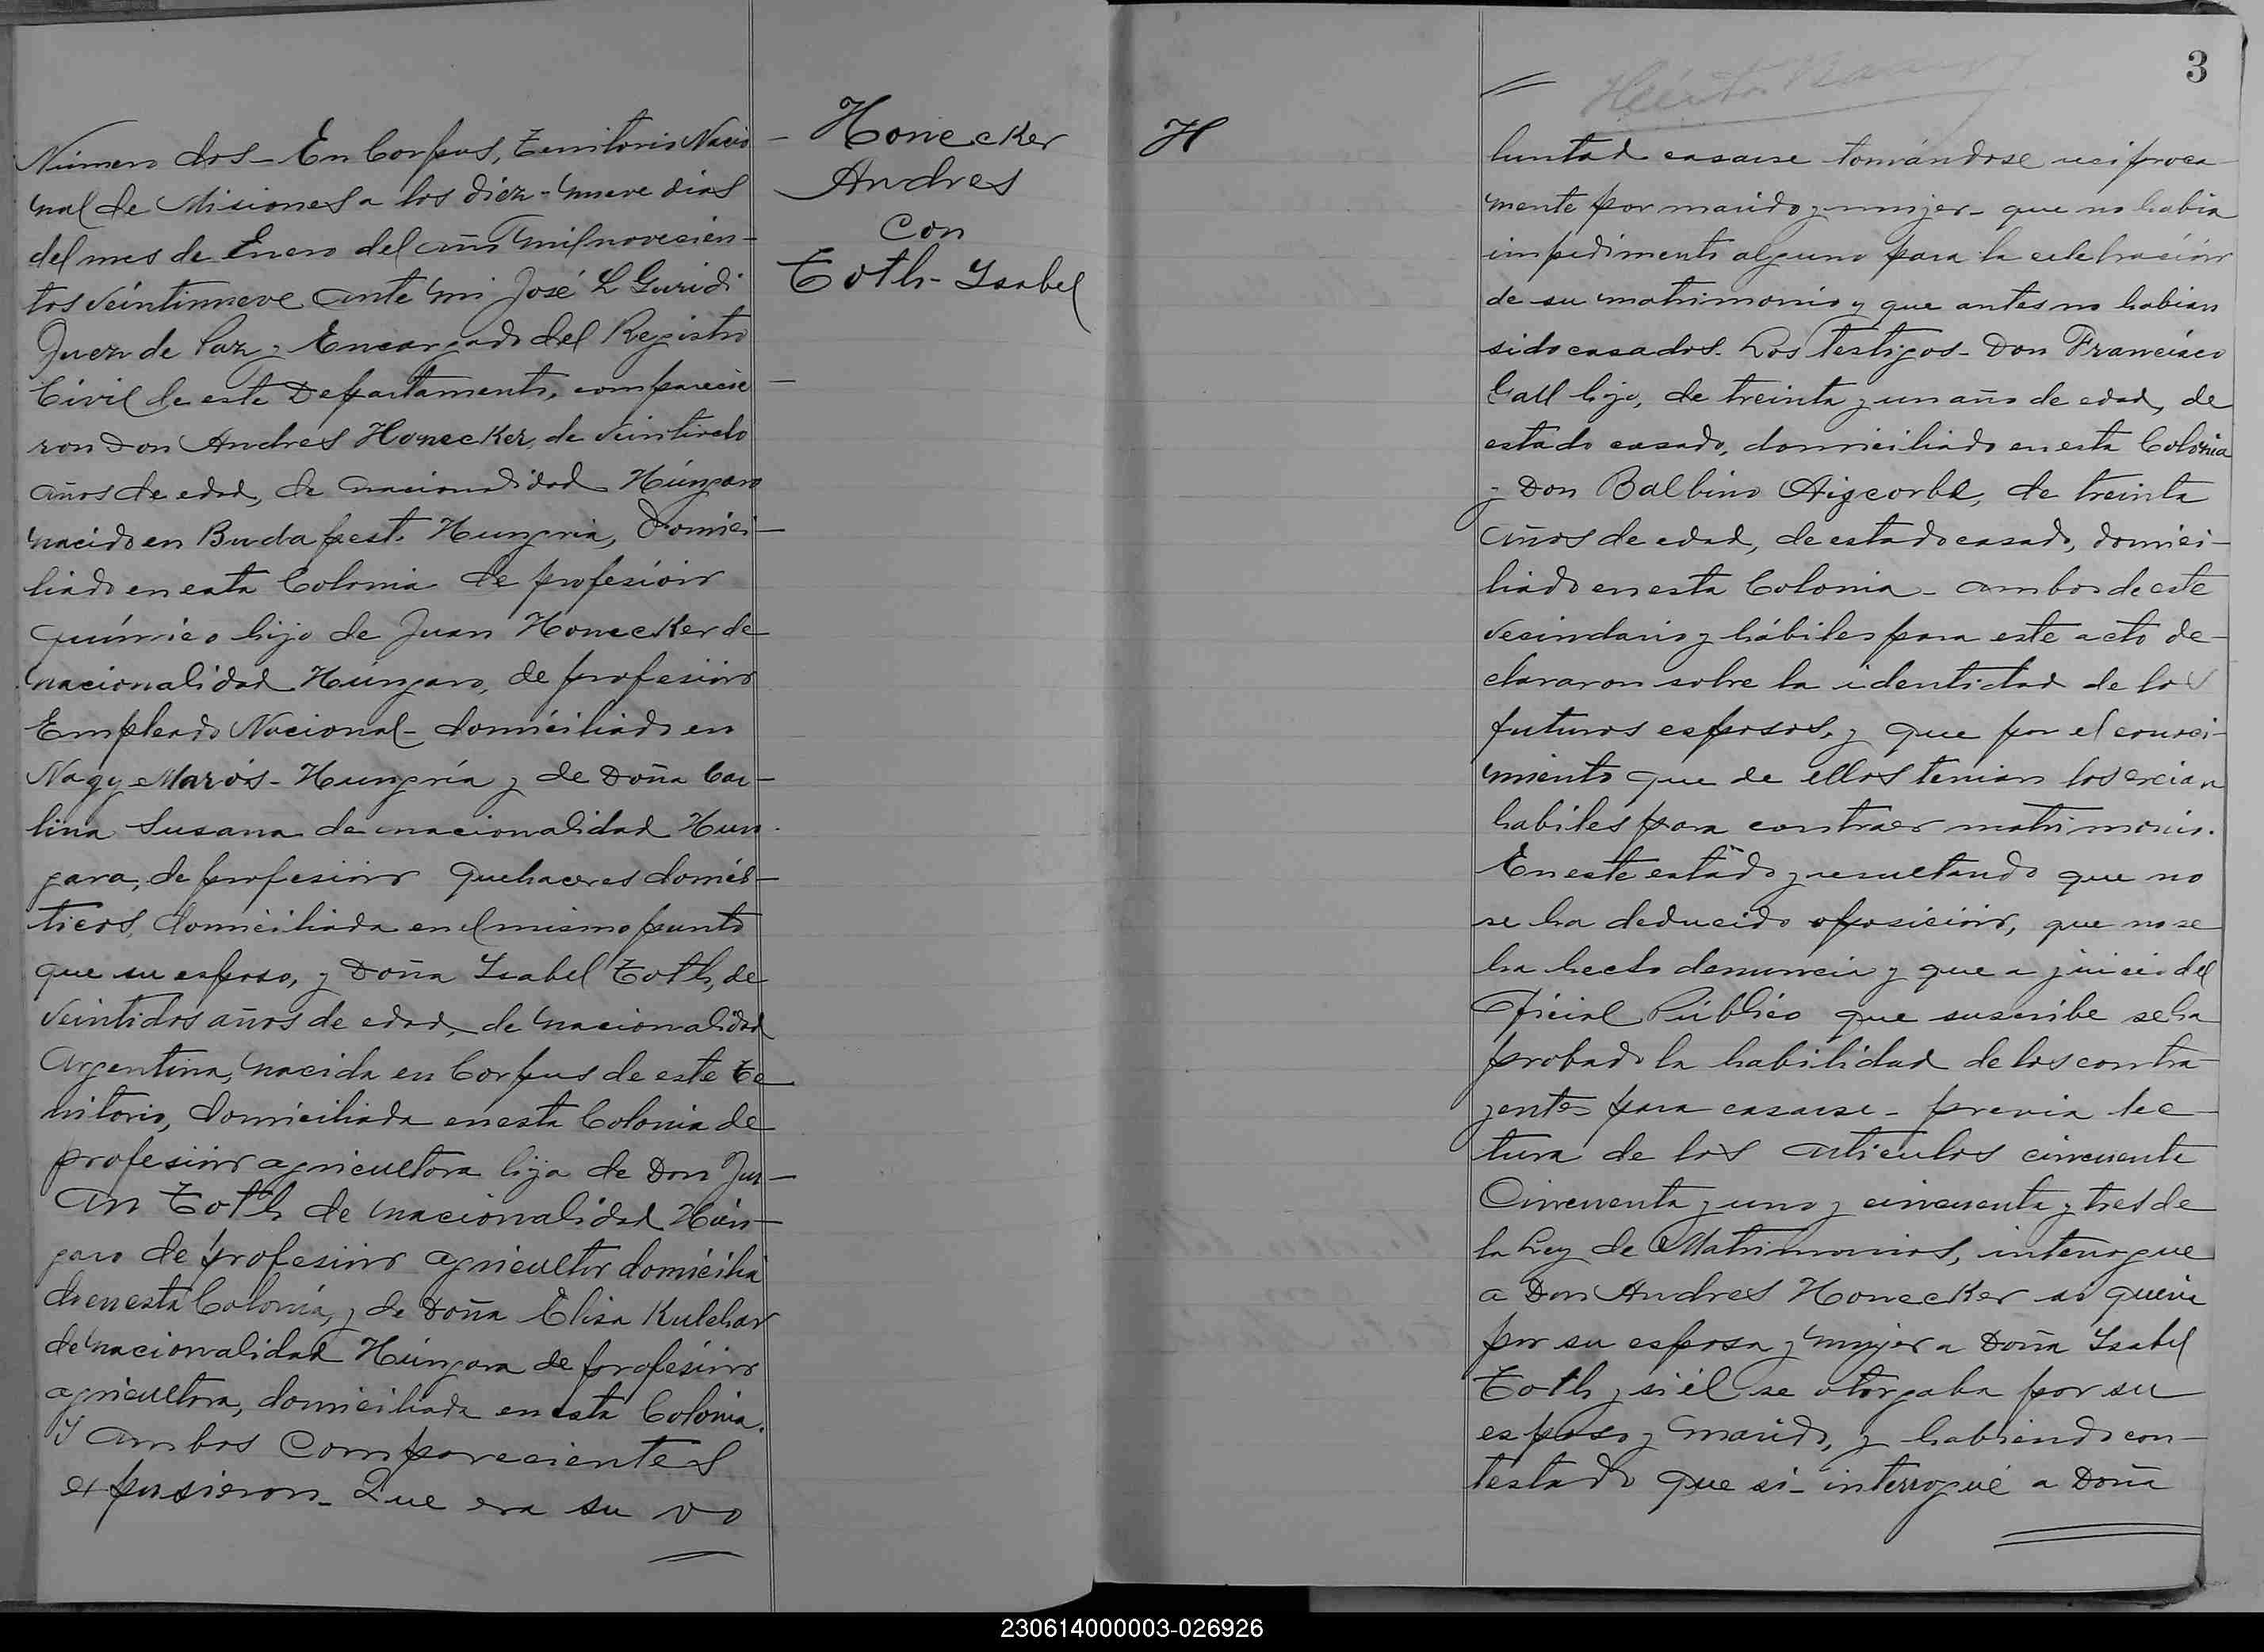 Número dos - En Corpus, Territorio Nacio
nal de Misiones a los diez-nueve dias
del mes de Enero del año mil novecien-
tos veintinueve ante mi José L Guridi
Juez de Paz y Encargado del Registro
Civil de este Departamento, comparecie
ron Don Andres Honecker, de veintiocho
años de edad, de nacionalidad Húngaro
nacido en Budapest. Hungria, Domici-
liado en esta Colonia de profesión
químico hijo de Juan Honecker de
nacionalidad Húngaro, de profesión
Empleado Nacional - domiciliado en
Nagy-Marós - Hungría y de Doña Car-
lina Susana de nacionalidad Hun
gara, de profesión quehaceres domés-
ticos, domiciliada en el mismo punto
que su esposo, y Doña Isabel Toth, de
veintidos años de edad, de nacionalidad
Argentina, nacida en Corpus de este Te
rritorio, domiciliada en esta Colonia de
profesión agricultora hija de Don Ju-
an Toth de nacionalidad Hún-
garo de profesión agricultor domicilia
do en esta Colonia, y de Doña Elisa Kulchar
de nacionalidad Húngara de profesión
agricultora, domiciliada en esta Colonia.
Y ambos comparecientes
expusieron - Que era su vo
Honecker
Andres
Con
Toth - Isabel
H
3
luntad casarse tomándose reciproca
mente por marido y mujer - que no habia
impedimento alguno para la celebración
de su matrimonio y que antes no habian
sido casados. Los testigos - Don Francisco
Gall hijo, de treinta y un año de edad, de
estado casado, domiciliado en esta Colonia
y Don Balbino de treinta
años de edad, de estado casado, domici-
liado en esta Colonia - ambos de este
vecindario y hábiles para este acto de-
clararon sobre la identidad de los
futuros esposos, y que por el conoci-
miento que de ellos tenian los creian
habiles para contraer matrimonio.
En este estado y resultando que no
se ha deducido oposición, que no se
ha hecho denuncia y que a juicio del
Oficial Público que suscribe se ha
probado la habilidad de los contra
yentes para casarse - previa lec-
tura de los articulos cincuenta
Cincuenta y uno y cincuenta y tres de
la Ley de Matrimonios, interrogue
a Don Andres Honecker si queria
por su esposa y mujer a Doña Isabel
Toth y si él se otorgaba por su
esposo y marido, y habiendo con-
testado que si - interrogué a Doña
230614000003-026926